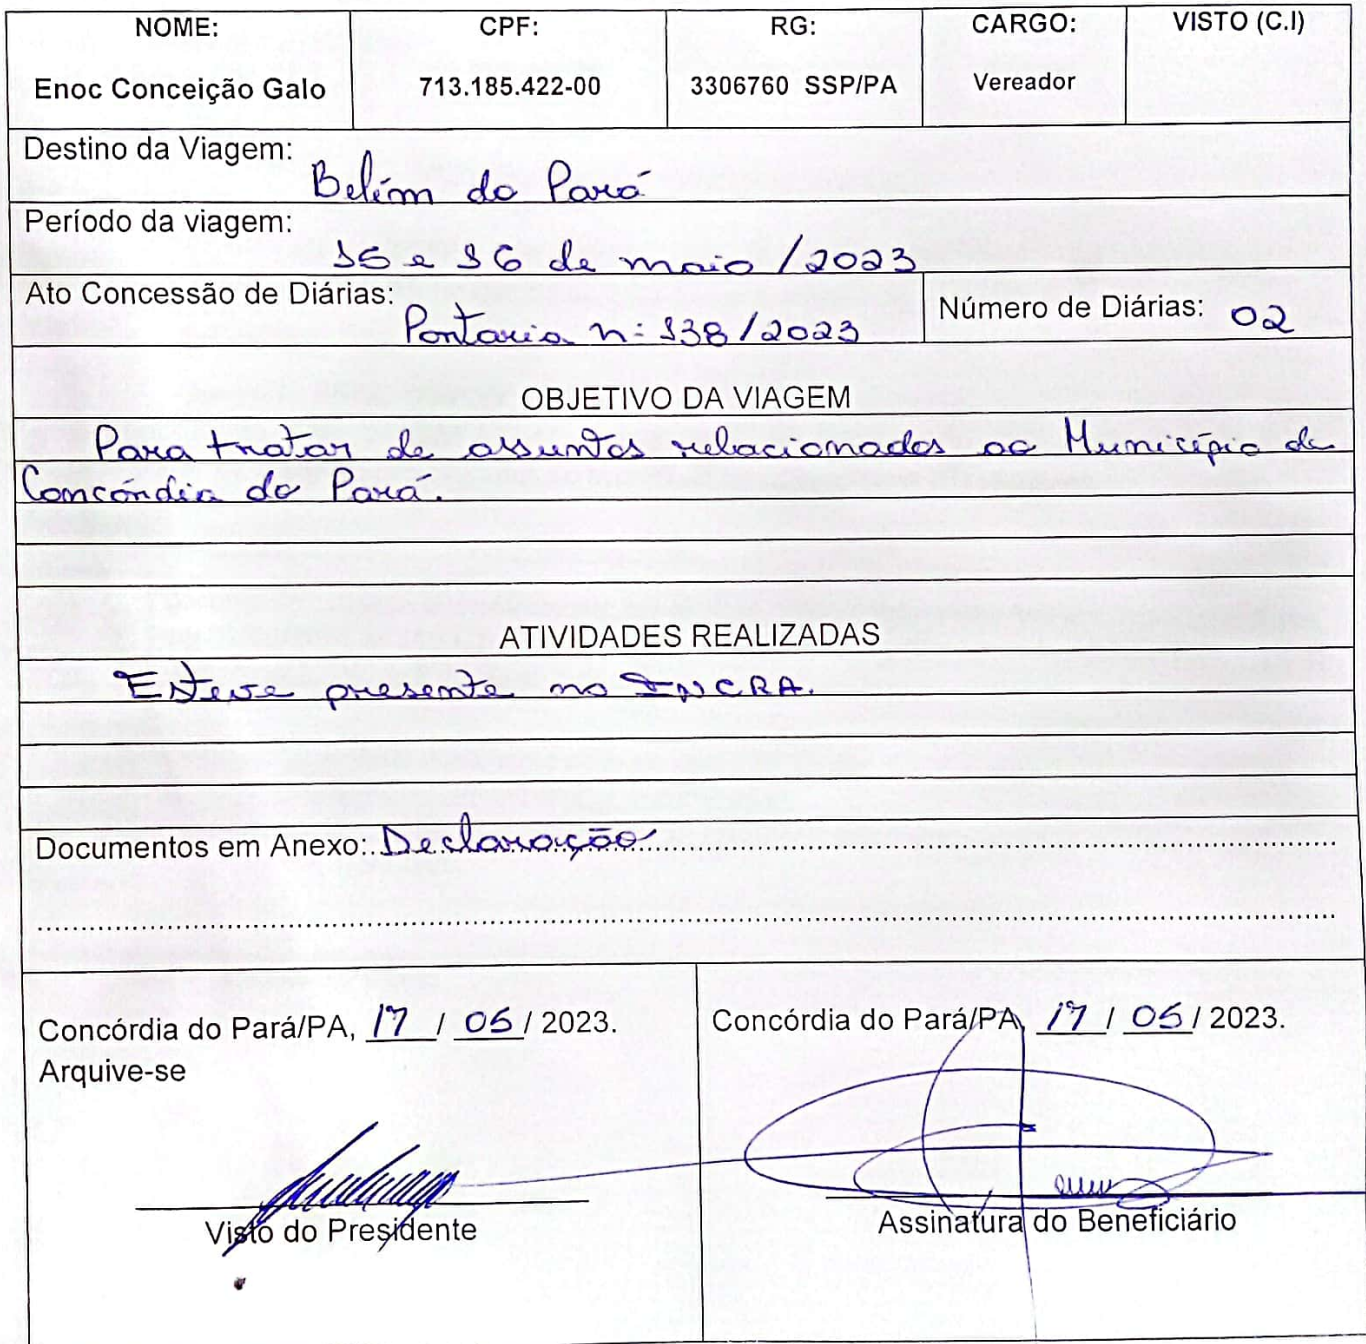 NOME: CPF: RG: CARGO: VISTO (C.I)
Enoc Conceição Galo 713.185.422-00 3306760 SSP/PA Vereador
Destino da Viagem:
Belém do Pará
Período da viagem:
15 e 16 de maio /2023
Ato Concessão de Diárias:
Portaria n: 138/2023
Número de Diárias: 02
OBJETIVO DA VIAGEM
Para tratar de assuntos relacionados ao Município de
Concórdia do Pará.
ATIVIDADES REALIZADAS
Esteve presente no INCRA.
Documentos em Anexo: Declaração
Concórdia do Pará/PA, 17 / 05 / 2023.
Arquive-se
Visto do Presidente
Concórdia do Pará/PA, 17 / 05 / 2023.
Assinatura do Beneficiário